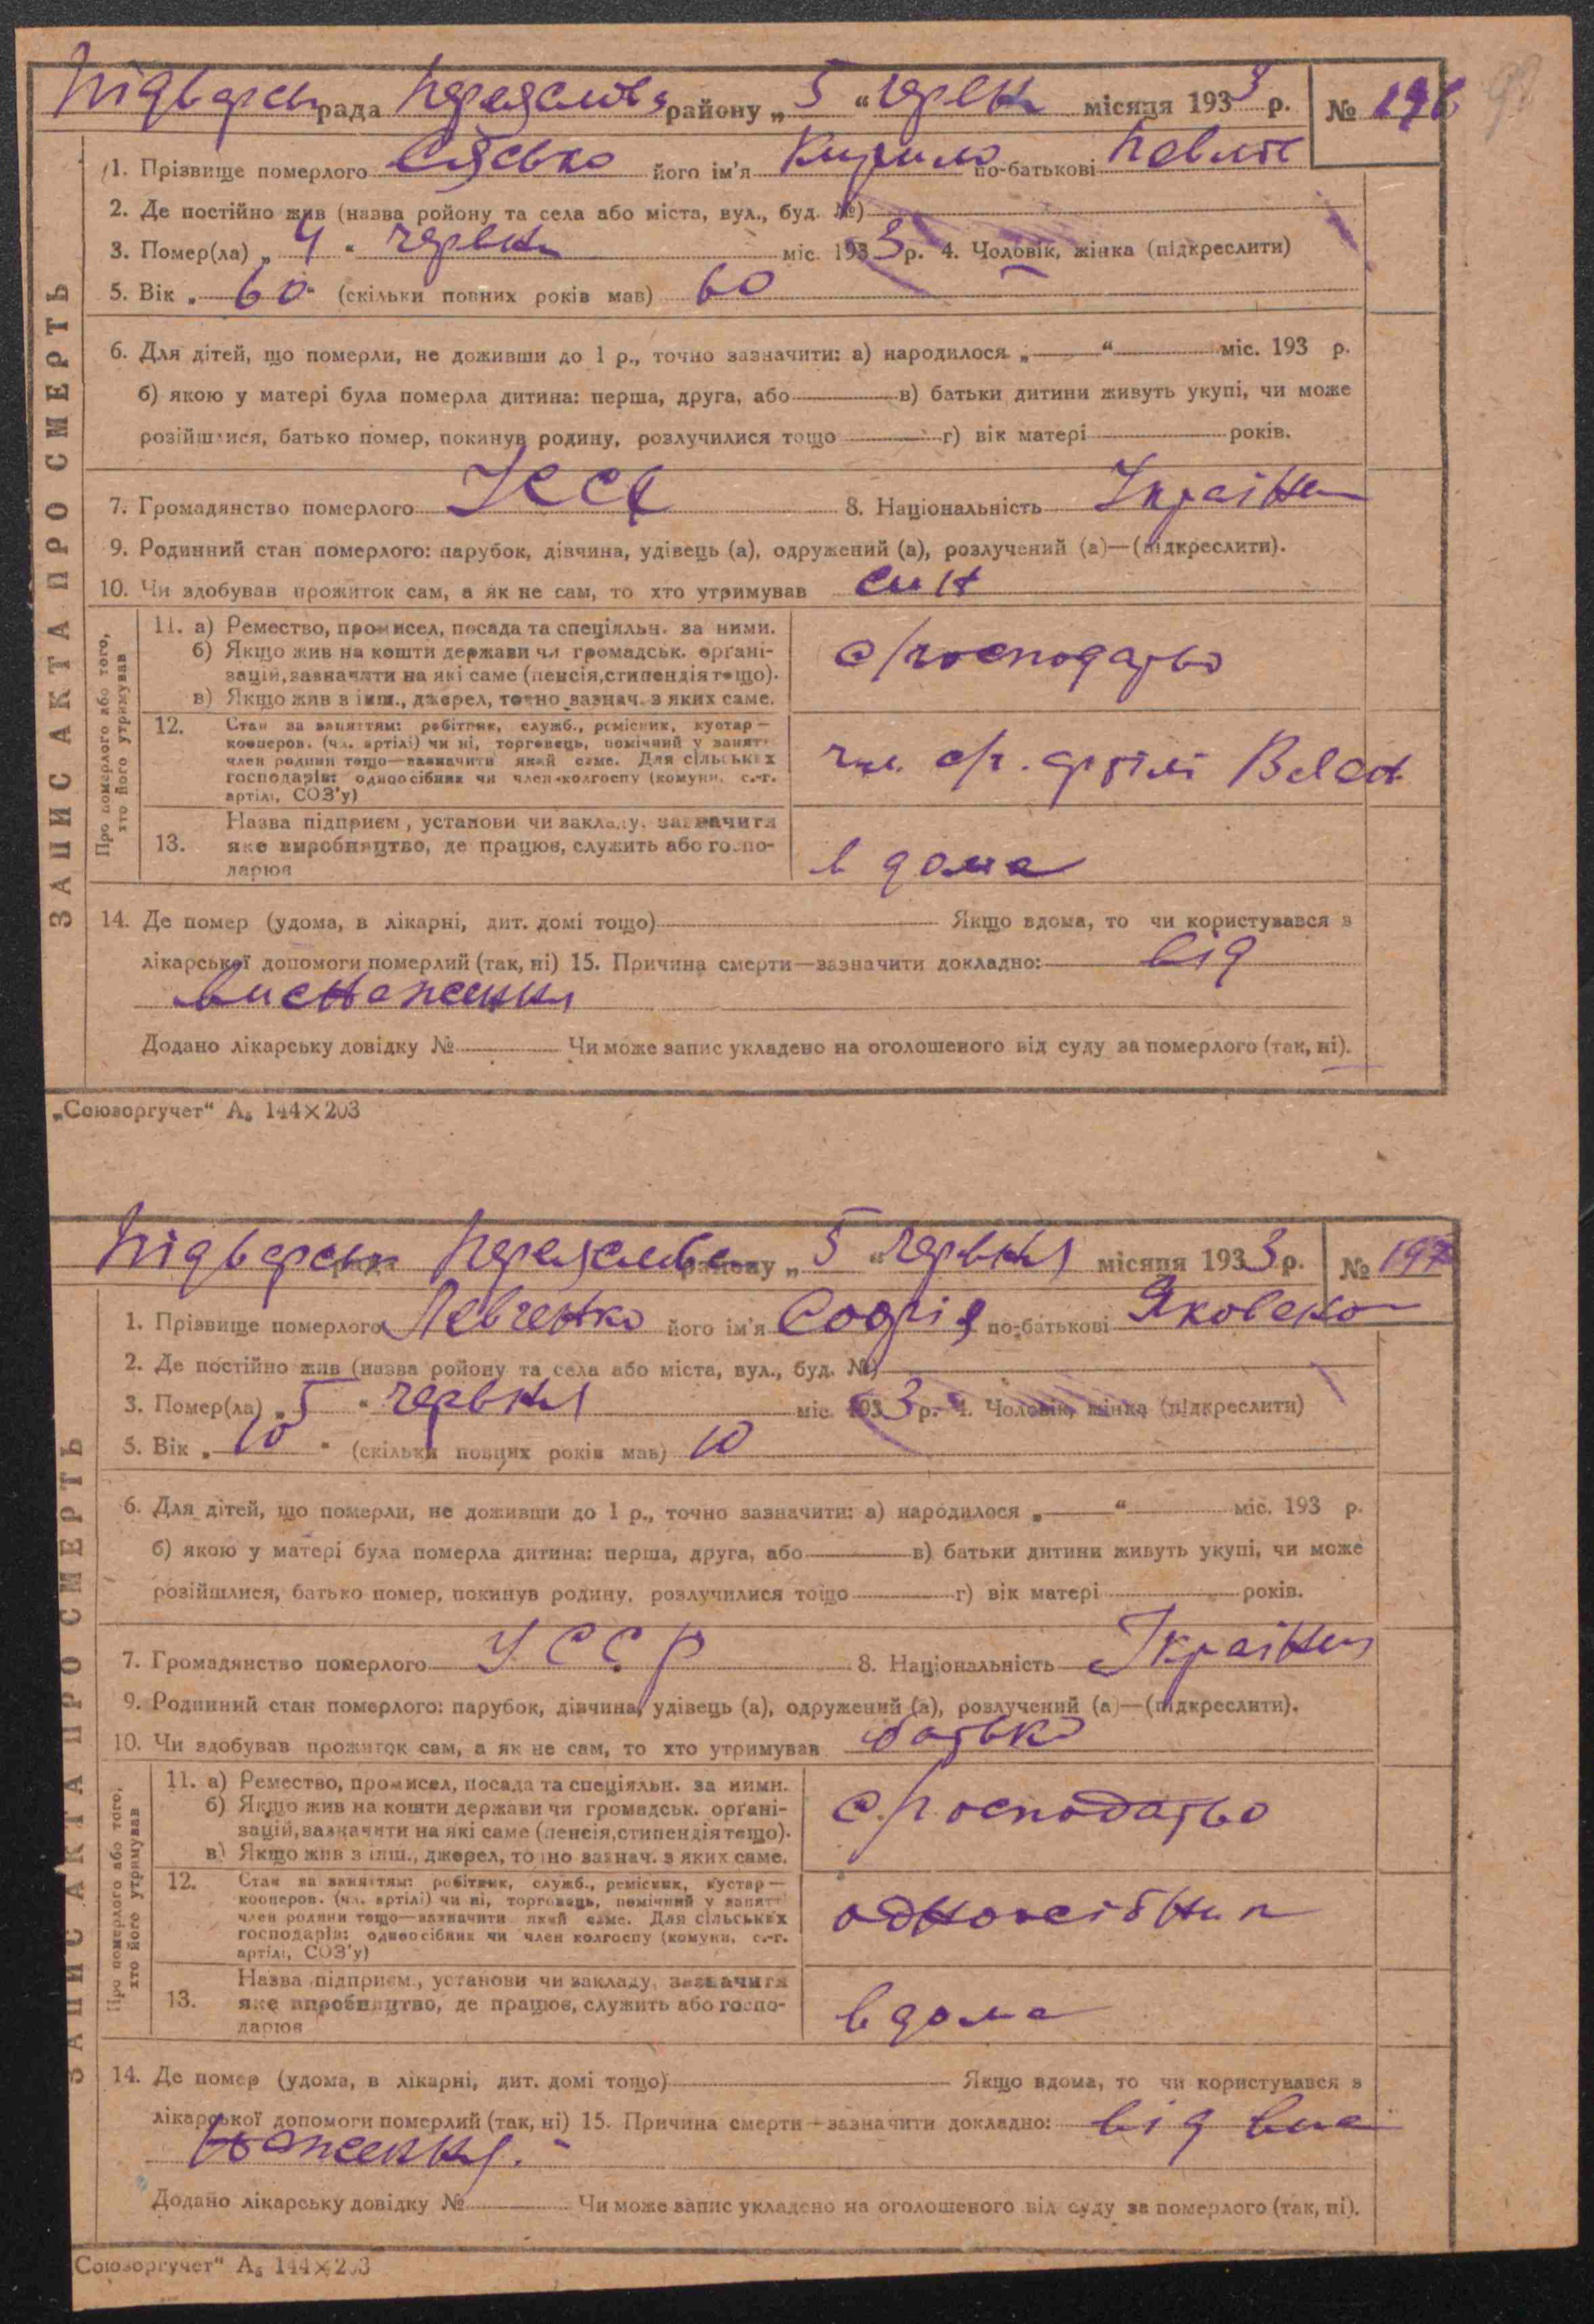 Підварськ рада Переяслівс району „ 5 “ червн місяця 1933 р. № 196
ЗАПИС АКТА ПРО СМЕРТЬ
1. Прізвище померлого його ім'я Кирило по-батькові Павлов
2. Де постійно жив (назва ройону та села або міста, вул., буд. №)
3. Помер(ла) „ 4 “ червня міс. 1933 р. 4. Чоловік, жінка (підкреслити)
5. Вік „ 60 (скільки повних років мав) 60
6. Для дітей, що померли, не доживши до 1 р., точно зазначити: а) народилося „ — “ міс. 193 р.
б) якою у матері була померла дитина: перша, друга, або — в) батьки дитини живуть укупі, чи може
розійшлися, батько помер, покинув родину, розлучилися тощо — г) вік матері — років.
7. Громадянство померлого УССР 8. Національність Україн
9. Родинний стан померлого: парубок, дівчина, удівець (а), одружений (а), розлучений (а)—(підкреслити).
10. Чи здобував прожиток сам, а як не сам, то хто утримував син
Про померлого або того, хто його утримував
11. а) Ремество, промисел, посада та спеціяльн. за ними.
б) Якщо жив на кошти держави чи громадськ. органі-
зацій, зазначити на які саме (пенсія, стипендія тощо).
в) Якщо жив з інш., джерел, точно зазнач. з яких саме.
с/господарство
12. Стан за заняттям: робітник, служб., ремісник, кустар—
кооперов. (чл. артілі) чи ні, торговець, помічний у занятт
член родини тощо—зазначити який саме. Для сільських
господарів: одноосібник чи член колгоспу (комуни, с.-г.
артілі, СОЗ'у)
чл. с/г. артілі
13. Назва підприєм., установи чи закладу, зазначити
яке виробництво, де працюв, служить або госпо-
дарюв
в дома
14. Де помер (удома, в лікарні, дит. домі тощо) Якщо вдома, то чи користувався з
лікарської допомоги померлий (так, ні) 15. Причина смерти—зазначити докладно: від
виснаження
Додано лікарську довідку № Чи може запис укладено на оголошеного від суду за померлого (так, ні).
„Союзоргучет“ А₅ 144×203
Підварськ рада Переяслівськ району „ 5 “ червня місяця 1933 р. № 197
ЗАПИС АКТА ПРО СМЕРТЬ
1. Прізвище померлого Левченко його ім'я Софія по-батькові Яковена
2. Де постійно жив (назва ройону та села або міста, вул., буд. №)
3. Помер(ла) „ 5 “ червня міс. 1933 р. 4. Чоловік, жінка (підкреслити)
5. Вік „ 10 “ (скільки повних років мав) 10
6. Для дітей, що померли, не доживши до 1 р., точно зазначити: а) народилося „ — “ міс. 193 р.
б) якою у матері була померла дитина: перша, друга, або — в) батьки дитини живуть укупі, чи може
розійшлися, батько помер, покинув родину, розлучилися тощо — г) вік матері — років.
7. Громадянство померлого УССР 8. Національність Україн
9. Родинний стан померлого: парубок, дівчина, удівець (а), одружений (а), розлучений (а)—(підкреслити).
10. Чи здобував прожиток сам, а як не сам, то хто утримував батько
Про померлого або того, хто його утримував
11. а) Ремество, промисел, посада та спеціяльн. за ними.
б) Якщо жив на кошти держави чи громадськ. органі-
зацій, зазначити на які саме (пенсія, стипендія тощо).
в) Якщо жив з інш., джерел, точно зазнач. з яких саме.
с/господарство
12. Стан за заняттям: робітник, служб., ремісник, кустар—
кооперов. (чл. артілі) чи ні, торговець, помічний у занятт
член родини тощо—зазначити який саме. Для сільських
господарів: одноосібник чи член колгоспу (комуни, с.-г.
артілі, СОЗ'у)
одноосібник
13. Назва підприєм., установи чи закладу, зазначити
яке виробництво, де працюв, служить або госпо-
дарюв
вдома
14. Де помер (удома, в лікарні, дит. домі тощо) Якщо вдома, то чи користувався з
лікарської допомоги померлий (так, ні) 15. Причина смерти—зазначити докладно: від вис
наження.
Додано лікарську довідку № Чи може запис укладено на оголошеного від суду за померлого (так, ні).
Союзоргучет“ А₅ 144×203